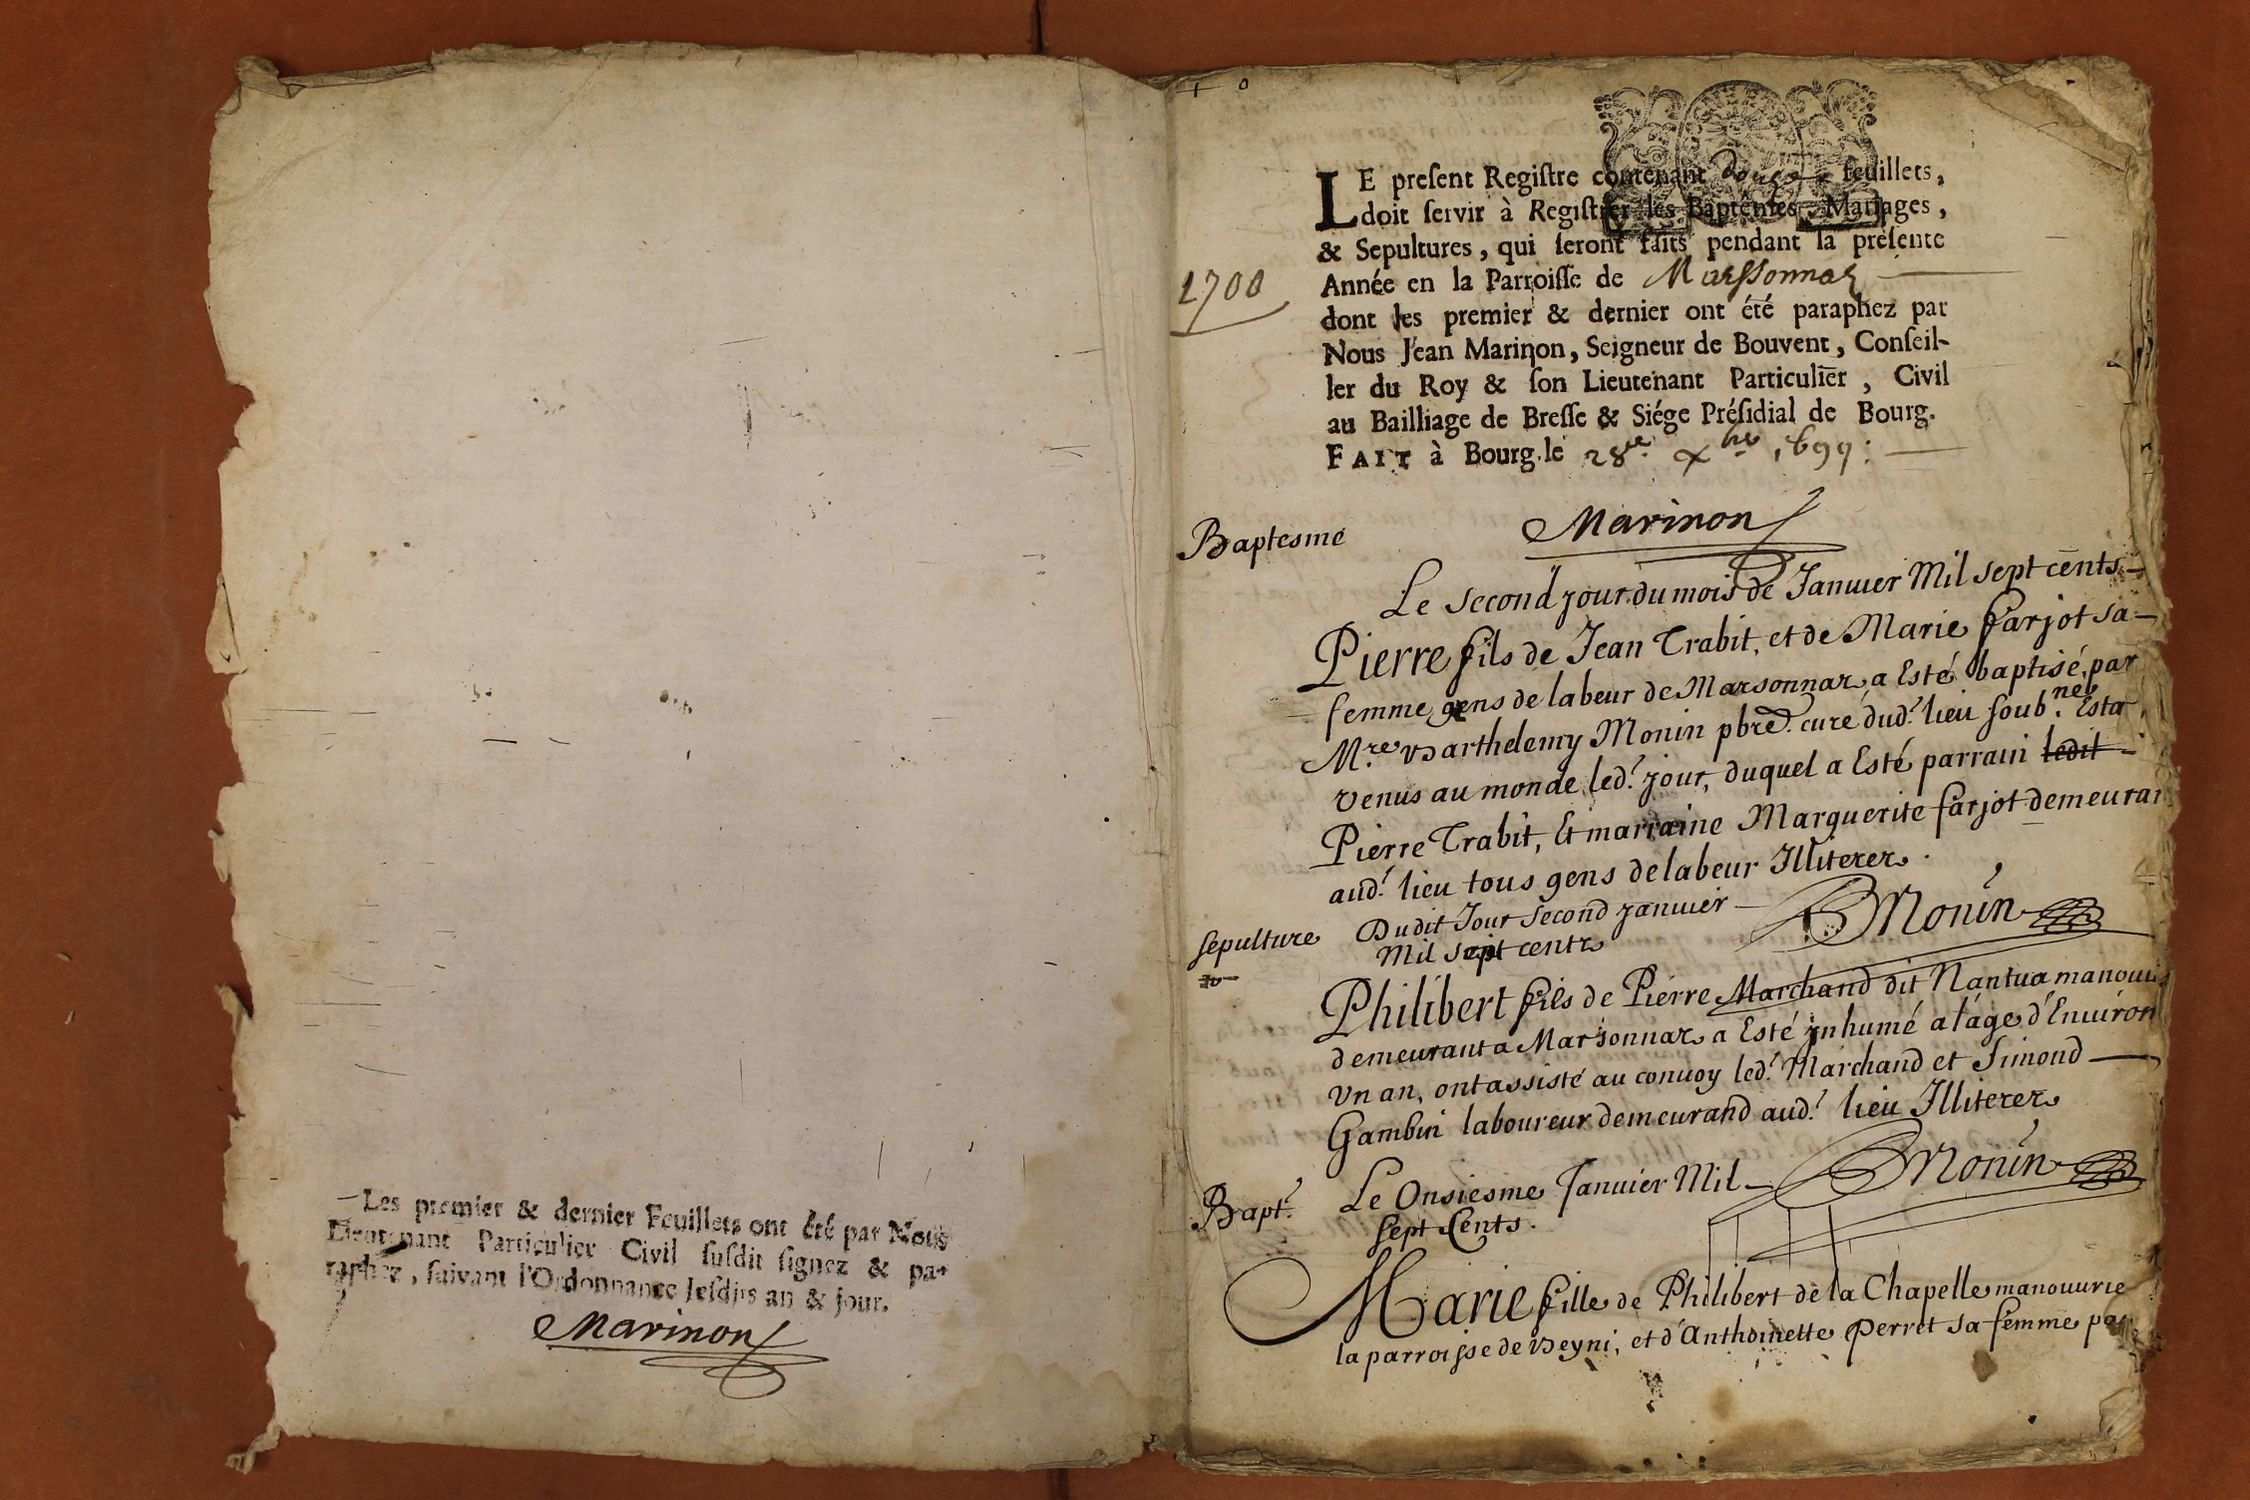 Les premier & dernier Feuillets ont été par Nous
Lieutenant Particulier Civil susdit signez & pa-
raphez, suivant l'Ordonnance lesdits an & jour.
Marinon
1700
LE present Registre contenant douze feuillets,
doit servir à Registrer les Baptêmes, Mariages,
& Sepultures, qui seront faits pendant la presente
Année en la Parroisse de Marssonnaz
dont les premier & dernier ont été paraphez par
Nous Jean Marinon, Seigneur de Bouvent, Conseil-
ler du Roy & son Lieutenant Particulier, Civil
au Bailliage de Bresse & Siége Présidial de Bourg.
FAIT à Bourg le 28e xbre 1699:
Marinon
Baptesme
Le second jour du mois de Januier Mil sept cents
Pierre fils de Jean Trabit, et de Marie farjot sa
femme gens de labeur de Marsonnaz, a Esté baptisé, par
Mre Barthelemy Monin pbre curé dud.t lieu soub.né Esta
venus au monde led.t jour, duquel a Esté parrain ledit
Pierre Trabit, Et marraine Marguerite farjot demeuran
aud.t lieu tous gens de labeur Illiterez.
Monin
sepulture
Dudit Jour second januier
Mil sept centz
Philibert fils de Pierre Marchand dit Nantua manouu
demeurant a Marsonnaz a Esté jnhumé a l'áge d'Enuiron
Vn an, ont assisté au conuoy led.t Marchand et Simond
Gambin laboureur demeurand aud.t lieu Illiterez
Monin
Bapt.
Le Onsiesme Januier Mil
sept Cents.
Marie fille de Philibert de la Chapelle manouurie
la parroisse de Beyni, et d'Anthoinette Perret sa femme